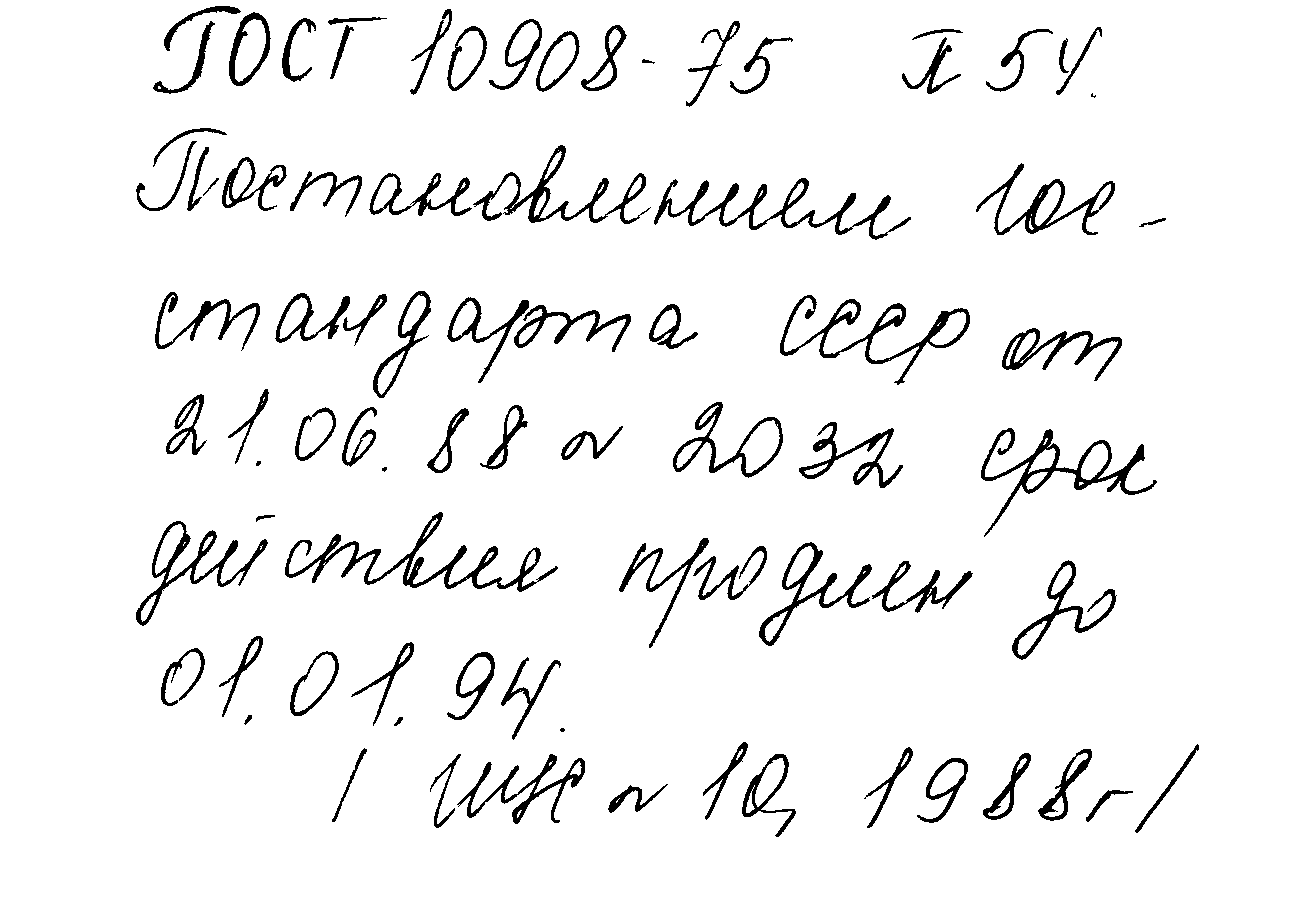 ГОСТ 10908-75 Л 54.
Постановлением Гос-
стандарта СССР от
21.06.88 № 2032 срок
действия продлен до
01.01.94.
/ ИУС № 10, 1988г /